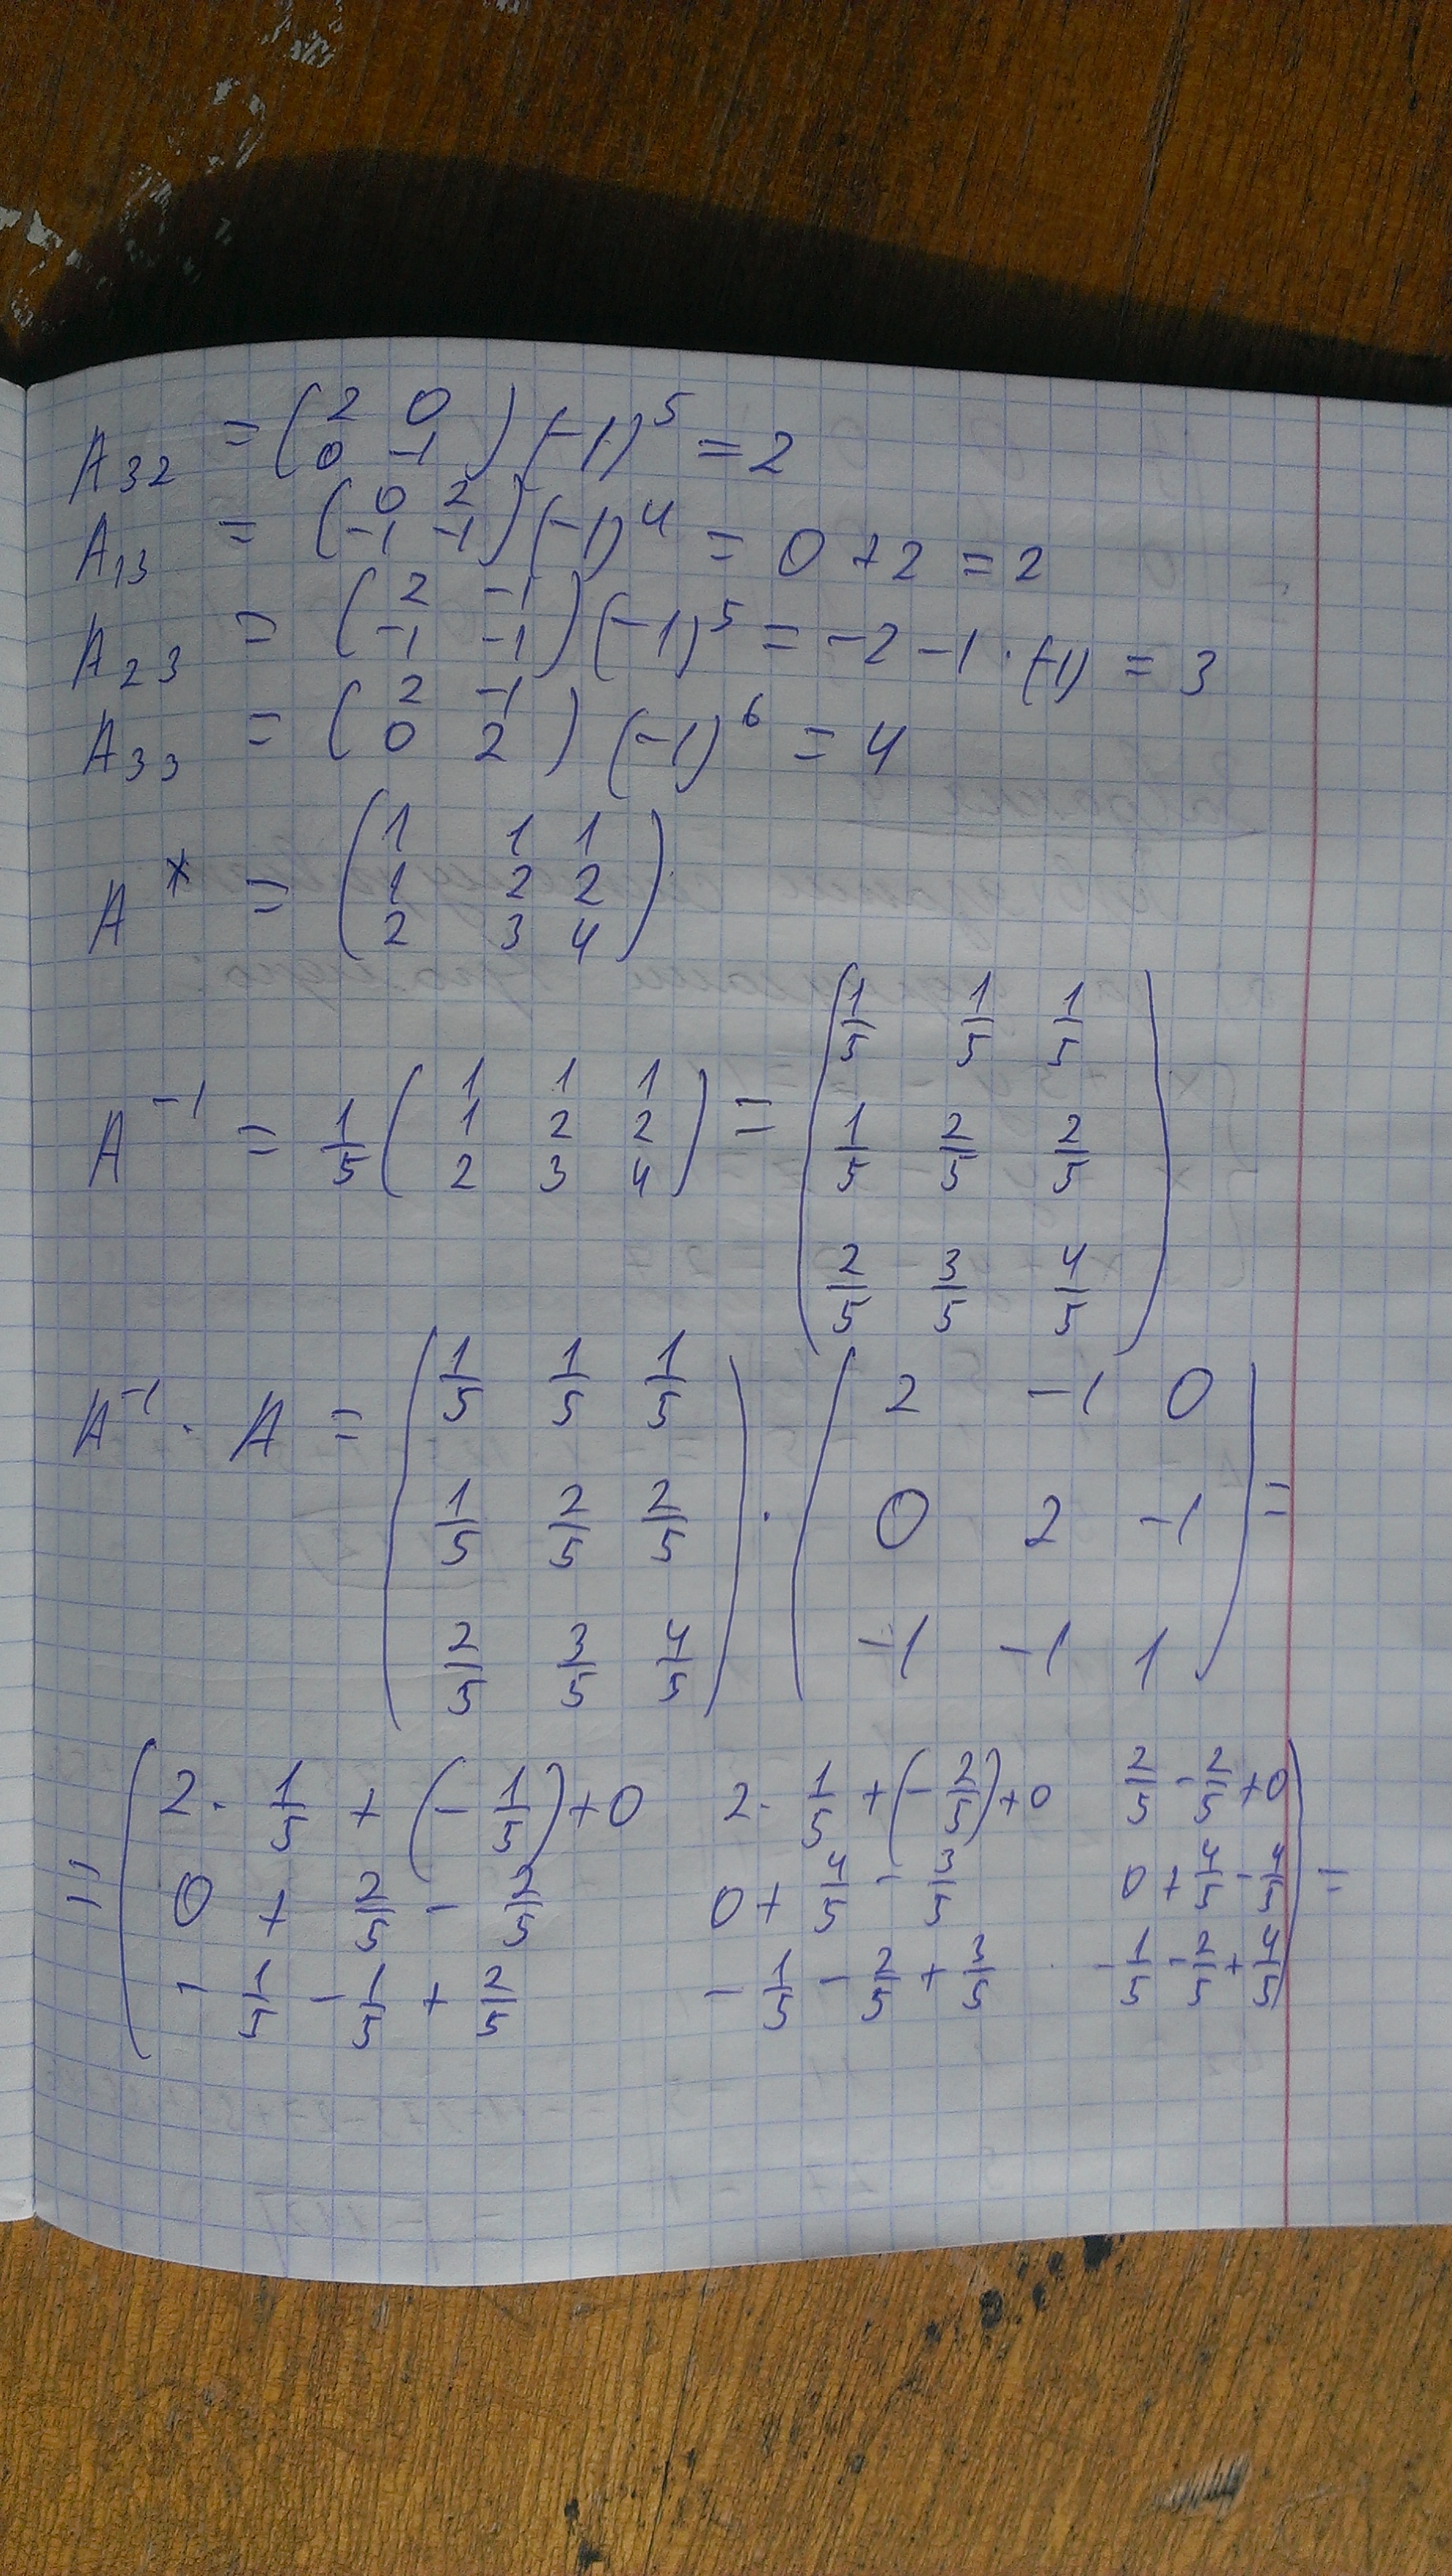 A₃₂ = (2 0 / 0 -1) (-1)⁵ = 2
A₁₃ = (0 2 / -1 -1) (-1)⁴ = 0 + 2 = 2
A₂₃ = (2 -1 / -1 -1) (-1)⁵ = -2 -1 · (-1) = 3
A₃₃ = (2 -1 / 0 2) (-1)⁶ = 4
A* = (1 1 1 / 1 2 2 / 2 3 4)
A⁻¹ = 1/5 (1 1 1 / 1 2 2 / 2 3 4) = (1/5 1/5 1/5 ; 1/5 2/5 2/5 ; 2/5 3/5 4/5)
A⁻¹ · A = (1/5 1/5 1/5 ; 1/5 2/5 2/5 ; 2/5 3/5 4/5) · (2 -1 0 ; 0 2 -1 ; -1 -1 1) =
= (2 · 1/5 + (-1/5) + 0   2 · 1/5 + (-2/5) + 0   2/5 - 2/5 + 0
0 + 2/5 - 2/5   0 + 4/5 - 3/5   0 + 4/5 - 4/5
-1/5 - 1/5 + 2/5   -1/5 - 2/5 + 3/5   -1/5 - 2/5 + 4/5) =